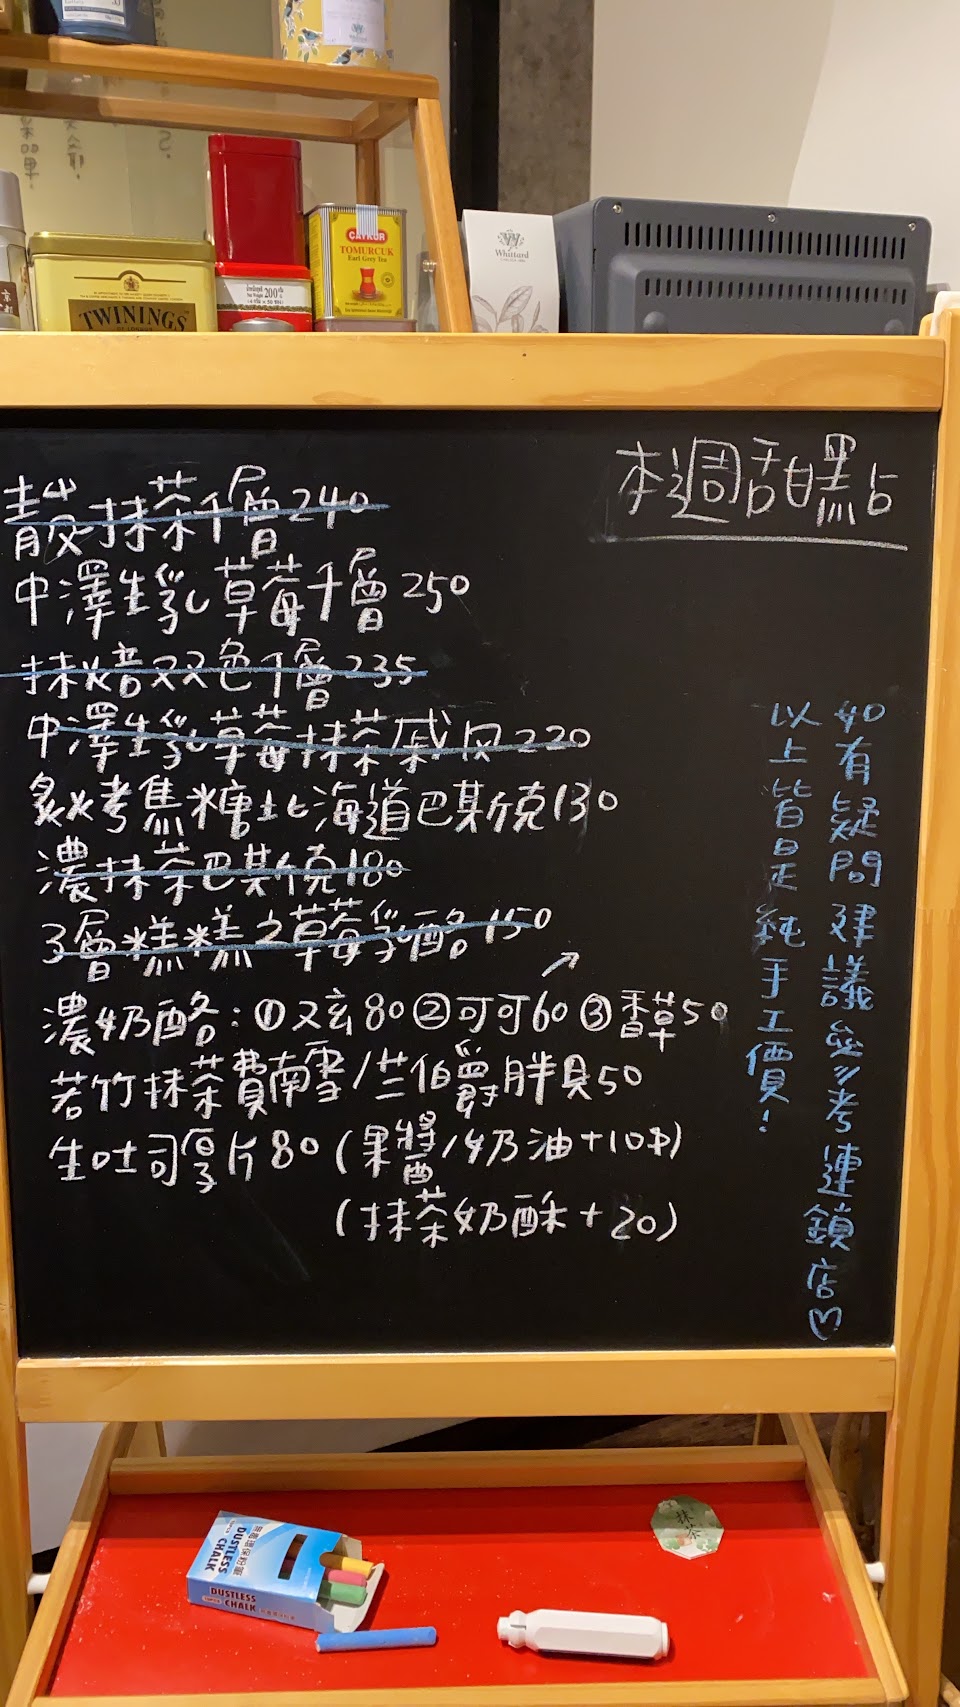 Whittard
ÇAYKUR
TOMURCUK
Earl Grey Tea
Net Weight 200g
TWININGS
OF LONDON
本週甜點
靛抹茶千層240
中澤生乳草莓千層250
抹焙双双色千層235
中澤生乳草莓抹茶戚风220
炙烤焦糖北海道巴斯克130
濃抹茶巴斯克180
3層糕糕之草莓乳酪150
濃奶酪:①双玄80②可可60③香草50
若竹抹茶費南雪/芒伯爵胖貝50
生吐司厚片80(果醬/奶油+10中)
(抹茶奶酥+20)
如有疑問建議參考連鎖店♡
以上皆是純手工價!
無毒環保粉筆
DUSTLESS
CHALK
DUSTLESS
CHALK
抹茶